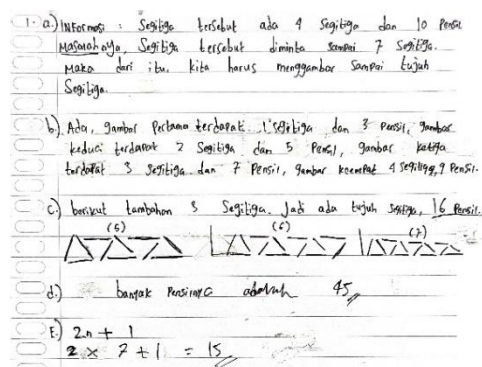 1. a.) Informasi : Segitiga tersebut ada 4 Segitiga dan 10 Pensil
Masalahnya, Segitiga tersebut diminta sampai 7 Segitiga.
Maka dari itu, kita harus menggambar sampai tujuh
Segitiga.
b.) Ada, gambar Pertama terdapat 1 segitiga dan 3 pensil, gambar
kedua terdapat 2 Segitiga dan 5 Pensil, gambar ketiga
terdapat 3 segitiga dan 7 Pensil, gambar keempat 4 segitiga, 9 Pensil.
C.) berikut tambahan 3 Segitiga. Jadi ada tujuh segitiga, 16 Pensil.
(5) (6) (7)
d.) banyak Pensilnya adalah 45
E.) 2n + 1
2 x 7 + 1 = 15